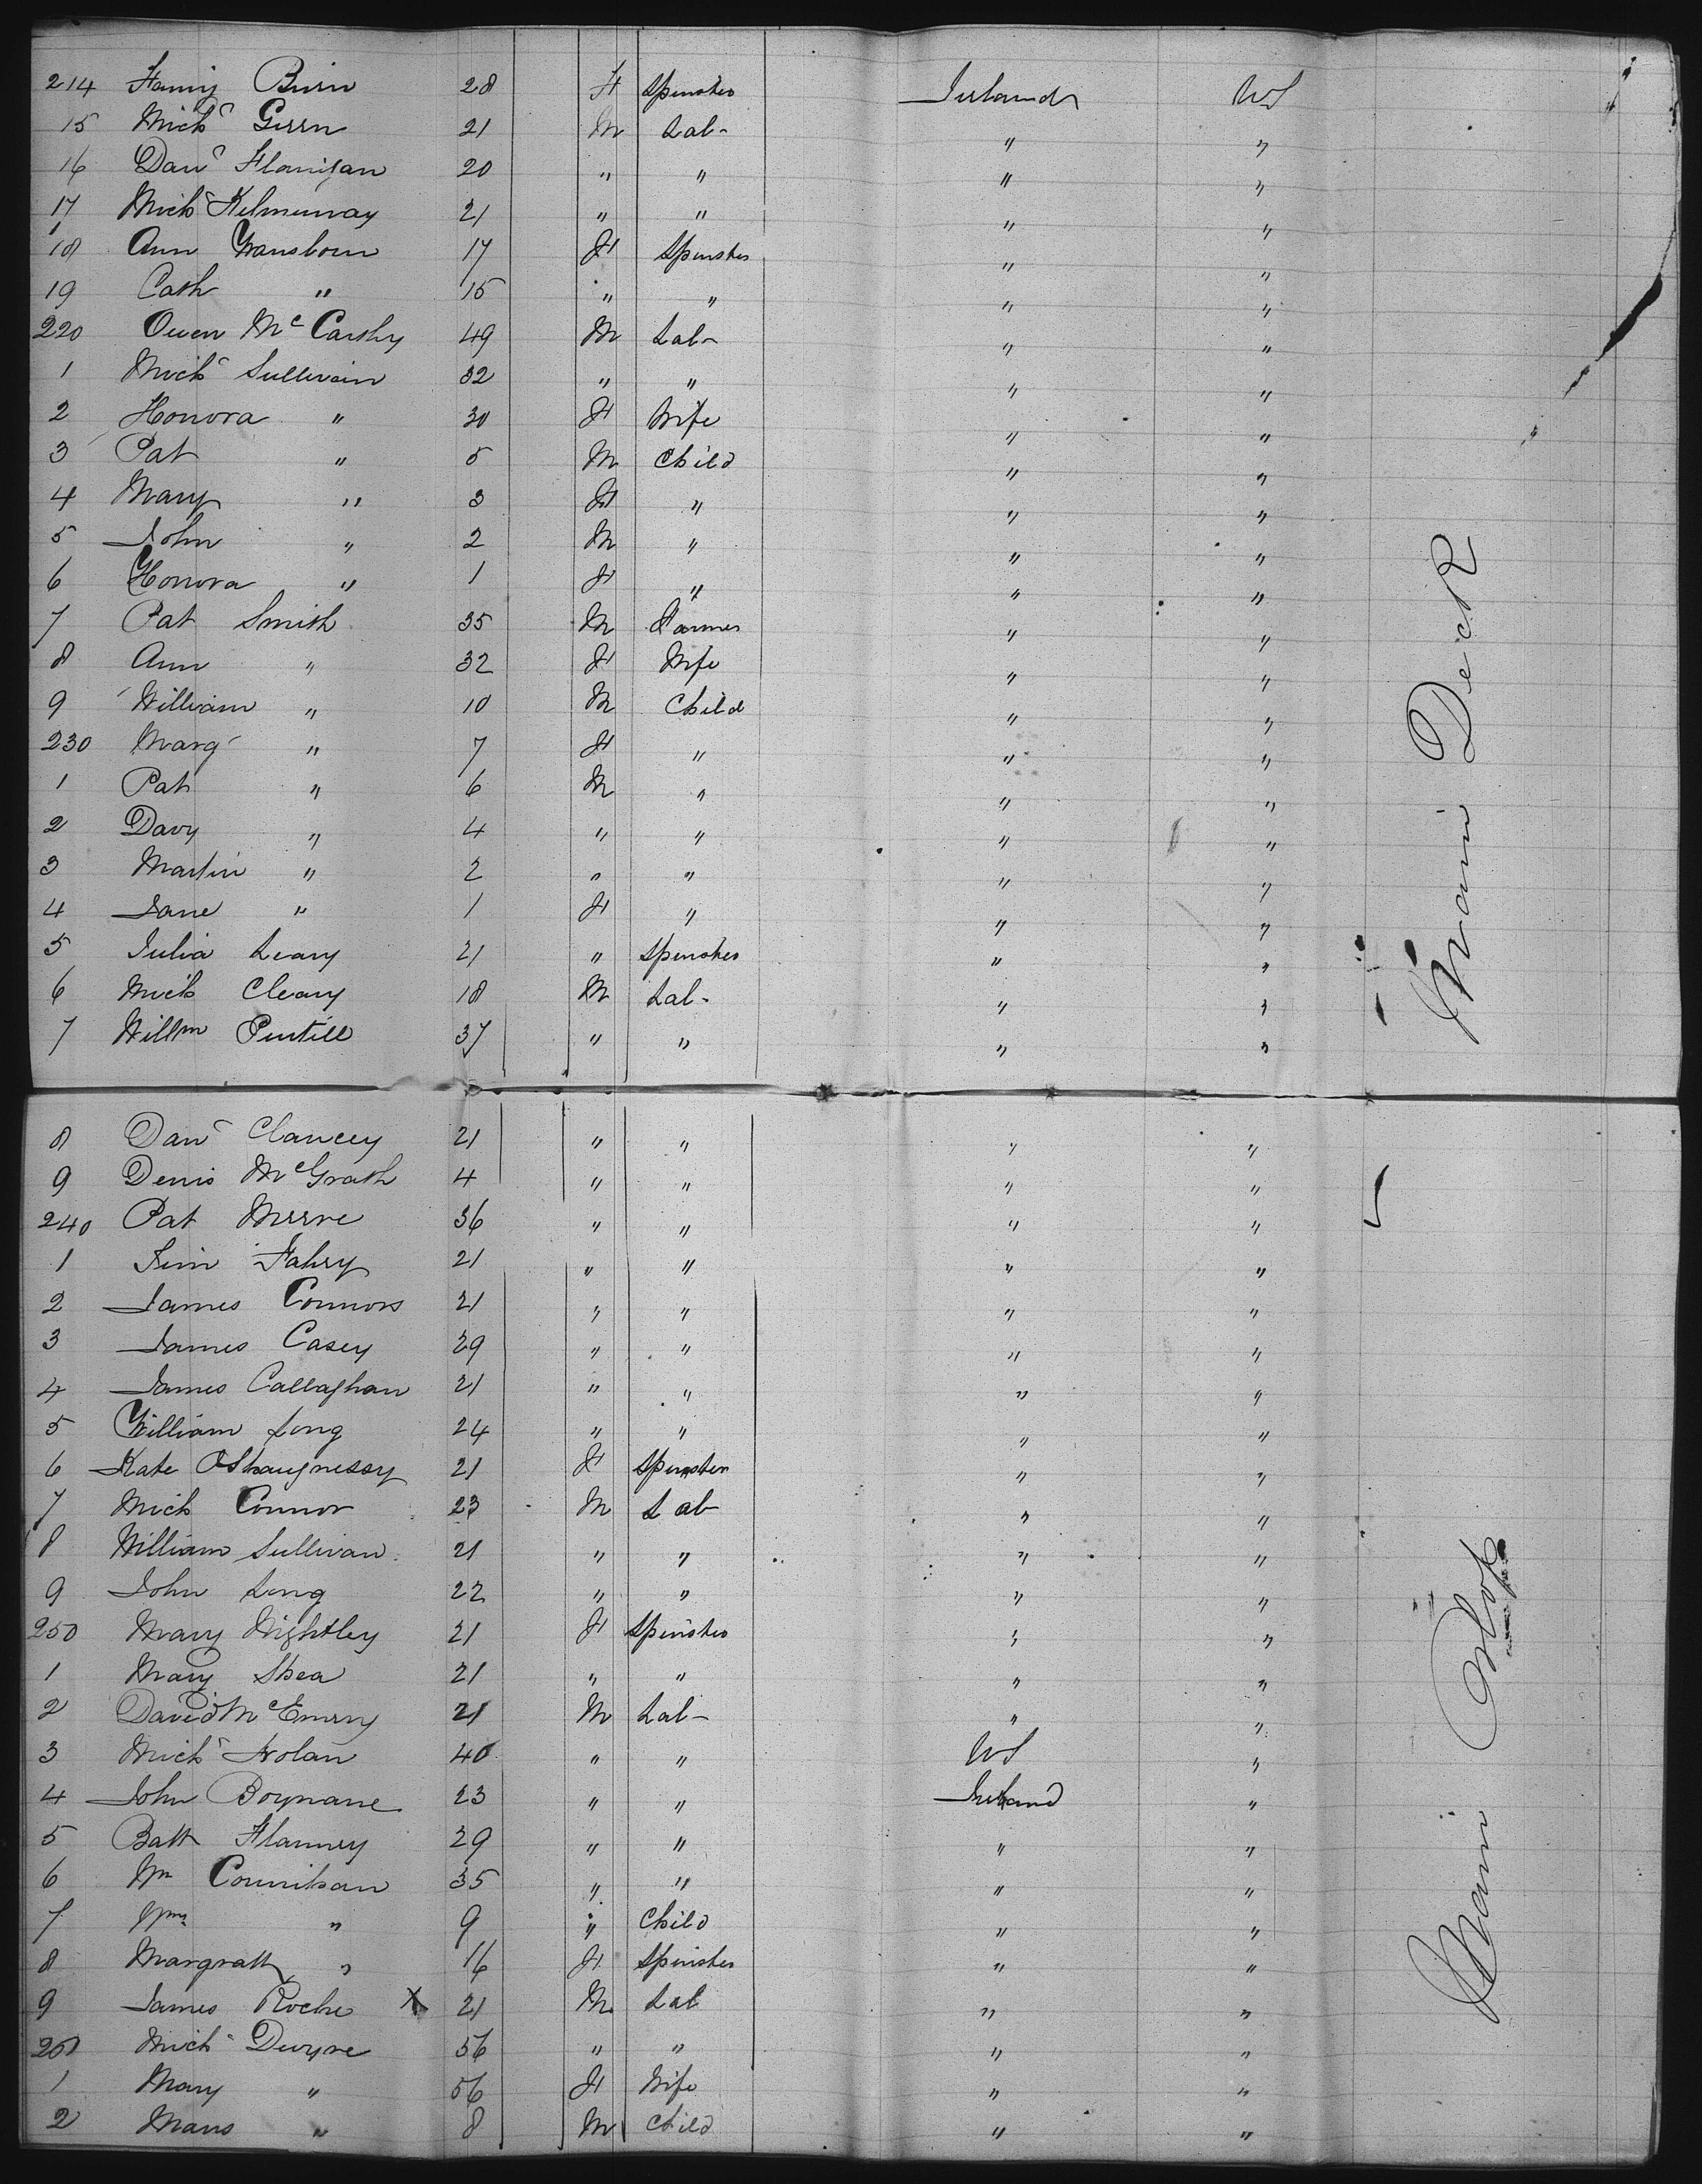 214 Fanny Burn 28 F Spinster Ireland US
15 Mich<sup>l</sup> Green 21 M Lab- " "
16 Dan<sup>l</sup> Flanigan 20 " " " "
17 Mich<sup>l</sup> 21 " " " "
18 Ann 17 F Spinster " "
19 Cath " 15 " " " "
220 Owen McCarthy 49 M Lab- " "
1 Mich<sup>l</sup> Sullivan 32 " " " "
2 Honora " 30 F Wife " "
3 Pat " 5 M Child " "
4 Mary " 3 F " " "
5 John " 2 M " " "
6 Honora " 1 F " " "
7 Pat Smith 35 M Farmer " "
8 Ann " 32 F Wife " "
9 William " 10 M Child " "
230 Marg " 7 F " " "
1 Pat " 6 M " " "
2 Davy " 4 " " " "
3 Martin " 2 " " " "
4 Jane " 1 F " " "
5 Julia Leary 21 " Spinster " "
6 Mich Cleary 18 M Lab- " "
7 Willm Purtill 37 " " " "
8 Dan<sup>l</sup> Clancey 21 " " " "
9 Denis McGrath 4 " " " "
240 Pat 36 " " " "
1 Fahey 21 " " " "
2 James Connors 21 " " " "
3 James Casey 29 " " " "
4 James Callaghan 21 " " " "
5 William Long 24 " " " "
6 Kate OShaugnessy 21 F Spinster " "
7 Mich Connor 23 M Lab " "
8 William Sullivan 21 " " " "
9 John Long 22 " " " "
250 Mary Nightley 21 F Spinster " "
1 Mary Shea 21 " " " "
2 David McEnery 21 M Lab- " "
3 Mich<sup>l</sup> Nolan 40 " " US "
4 John Boynane 23 " " Ireland "
5 Batt Flannery 29 " " " "
6 Wm Counihan 35 " " " "
7 " 9 " Child " "
8 Margratt " 16 F Spinster " "
9 James Roche X 21 M Lab " "
260 Mich<sup>l</sup> Dwyre 56 " " " "
1 Mary " 56 F Wife " "
2 " 8 M Child " "
Main Deck
Main